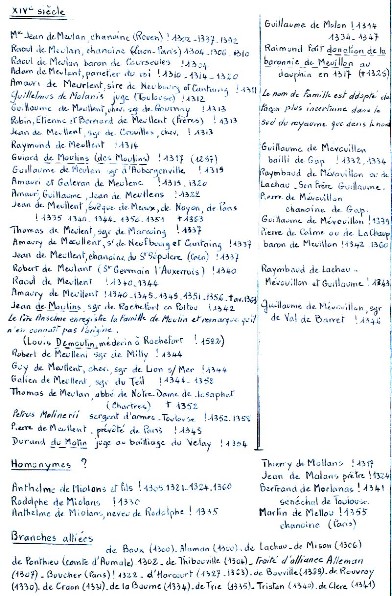 XIVe siècle
Me Jean de Meulan chanoine (Rouen) ! 1302-1337, 1332
Raoul de Meulan, chanoine (Laon-Paris) 1304-1306 1310
Raoul de Meulan baron de Courseules ! 1304
Adam de Meulent, panetier du roi ! 1310-1314-1320
Amaury de Meurlent, sire de Neubourg et Cantaing ! 1311
Guillelmus de Molanis juge (Toulouse) ! 1312
Guillaume de Meullent, chev. sgr de Gournay ! 1313
Robin, Etienne et Bernard de Meullent (Frères) ! 1313
Jean de Meullent, sgr de chev. ! 1313
Raymond de Meullent ! 1314
Guiard de Moulins (des Moulins) ! 1317 (1297)
Guillaume de Meulan sgr d'Aubergenville ! 1319
Amauri et Galeran de Meulenc ! 1319, 1320
Amauri, Guillaume, Jean de Meullens ! 1322
Jean de Meullent, évêque de Meaux, de Noyon, de Paris
! 1335 1340. 1344. 1350. 1351 + 1363
Thomas de Meulent, sgr de Marcaing ! 1337
Amaury de Meeullent, sr de Neufbourg et Cantaing ! 1337
Jean de Meullent, chanoine du St Sépulcre (Caen) ! 1337
Robert de Meulant (St Germain l'Auxerrois) ! 1340
Raoul de Meullent ! 1340, 1344
Amaury de Meullent ! 1340-1345, 1349, 1351, 1356
Jean de Moulins, sgr de Rochefort en Poitou ! 1342
Le Père Anselme enregistre la famille de Moulin et remarque qu'il
n'en connaît pas l'origine.
(Louis Demoulin, médecin à Rochefort ! 1582)
Robert de Meullent sgr de Milly ! 1344
Guy de Meullent, chev. sgr de Lion s/ Mer ! 1344
Galien de Meullent, sgr du Teil ! 1344-1352
Thomas de Meulan, abbé de Notre-Dame de Josaphat
(Chartres) + 1352
Petrus Molinerii sergent d'armes. Toulouse ! 1352.1358
Pierre de Meullent, prévôté de Paris ! 1348
Durand du Molin juge au bailliage du Velay ! 1354
Guillaume de Molon ! 1314
1334-1347
Raimond fait donation de la
baronnie de Meuillon au
dauphin en 1317 (+ 1326)
Le nom de famille est adopté de
façon plus incertaine dans le
sud du royaume que dans le nord
Guillaume de Mévouillon
bailli de Gap ! 1332, 1334
Raymbaud de Mévouillon ou de
Lachau. Son frère Guillaume.
Pierre de Mévouillon
chanoine de Gap.
Guillaume de Mévouillon
Pierre de Calme ou de La Chaup
baron de Meuillon ! 1342 1360
Raymbaud de Lachau
Mévouillon et Guillaume ! 1343
Guillaume de Mévouillon, sgr
de Val de Barret ! 1346
Homonymes ?
Anthelme de Miolans et fils ! 1305, 1321, 1324, 1360
Rodolphe de Miolans ! 1330
Anthelme de Miolans, neveu de Rodolphe ! 1335
Thierry de Mollans ! 1319
Jean de Molans prêtre ! 1324
Bertrand de Morlanas ! 1341
sénéchal de Toulouse
Martin de Mellou ! 1355
chanoine (Paris)
Branches alliées
de Baux (1300). Alaman (1300). de Lachau. de Mison (1306)
de Ponthieu (comte d'Aumale) 1302. de Thibouville (1306). traité d'alliance Alleman
(1307). Boucher (Paris) ! 1322. d'Harcourt (1327. 1363). de Bouville (1328). de Rouvray
(1330). de Craon (1331). de la Baume (1334). de Trie (1335). Tristan (1340). de Clere (1341)